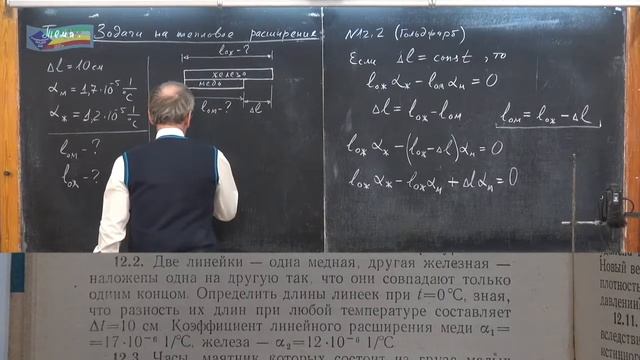 Тема: Задачи на тепловое расширение
Δl = 10 см
αм = 1,7·10⁻⁵ 1/°C
αж = 1,2·10⁻⁵ 1/°C
lом - ?
lож - ?
lож - ?
железо
медь
lом - ?
Δl
N12.2 (Гольдфарб)
Если Δl = const, то
lож αж - lом αм = 0
Δl = lож - lом
lом = lож - Δl
lож αж - (lож - Δl) αм = 0
lож αж - lож αм + Δl αм = 0
12.2. Две линейки — одна медная, другая железная —
наложены одна на другую так, что они совпадают только
одним концом. Определить длины линеек при t=0 °C, зная,
что разность их длин при любой температуре составляет
Δl=10 см. Коэффициент линейного расширения меди α₁=
=17·10⁻⁶ 1/°C, железа — α₂=12·10⁻⁶ 1/°C
12.3. Часы, маятник которых состоит из груза малых
Новый ве
плотность
давлении
12.11.
вследств